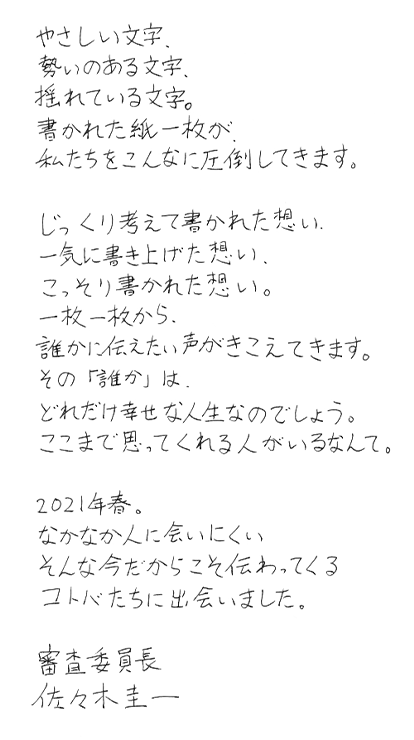 やさしい文字、
勢いのある文字、
揺れている文字。
書かれた紙一枚が、
私たちをこんなに圧倒してきます。
じっくり考えて書かれた想い、
一気に書き上げた想い、
こっそり書かれた想い。
一枚一枚から、
誰かに伝えたい声がきこえてきます。
その「誰か」は、
どれだけ幸せな人生なのでしょう。
ここまで思ってくれる人がいるなんて。
2021年春。
なかなか人に会いにくい
そんな今だからこそ伝わってくる
コトバたちに出会いました。
審査委員長
佐々木圭一